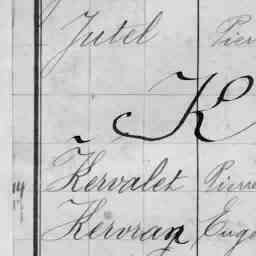 Jutel Pier
K
Kervalet Pierre
Kervran Euge